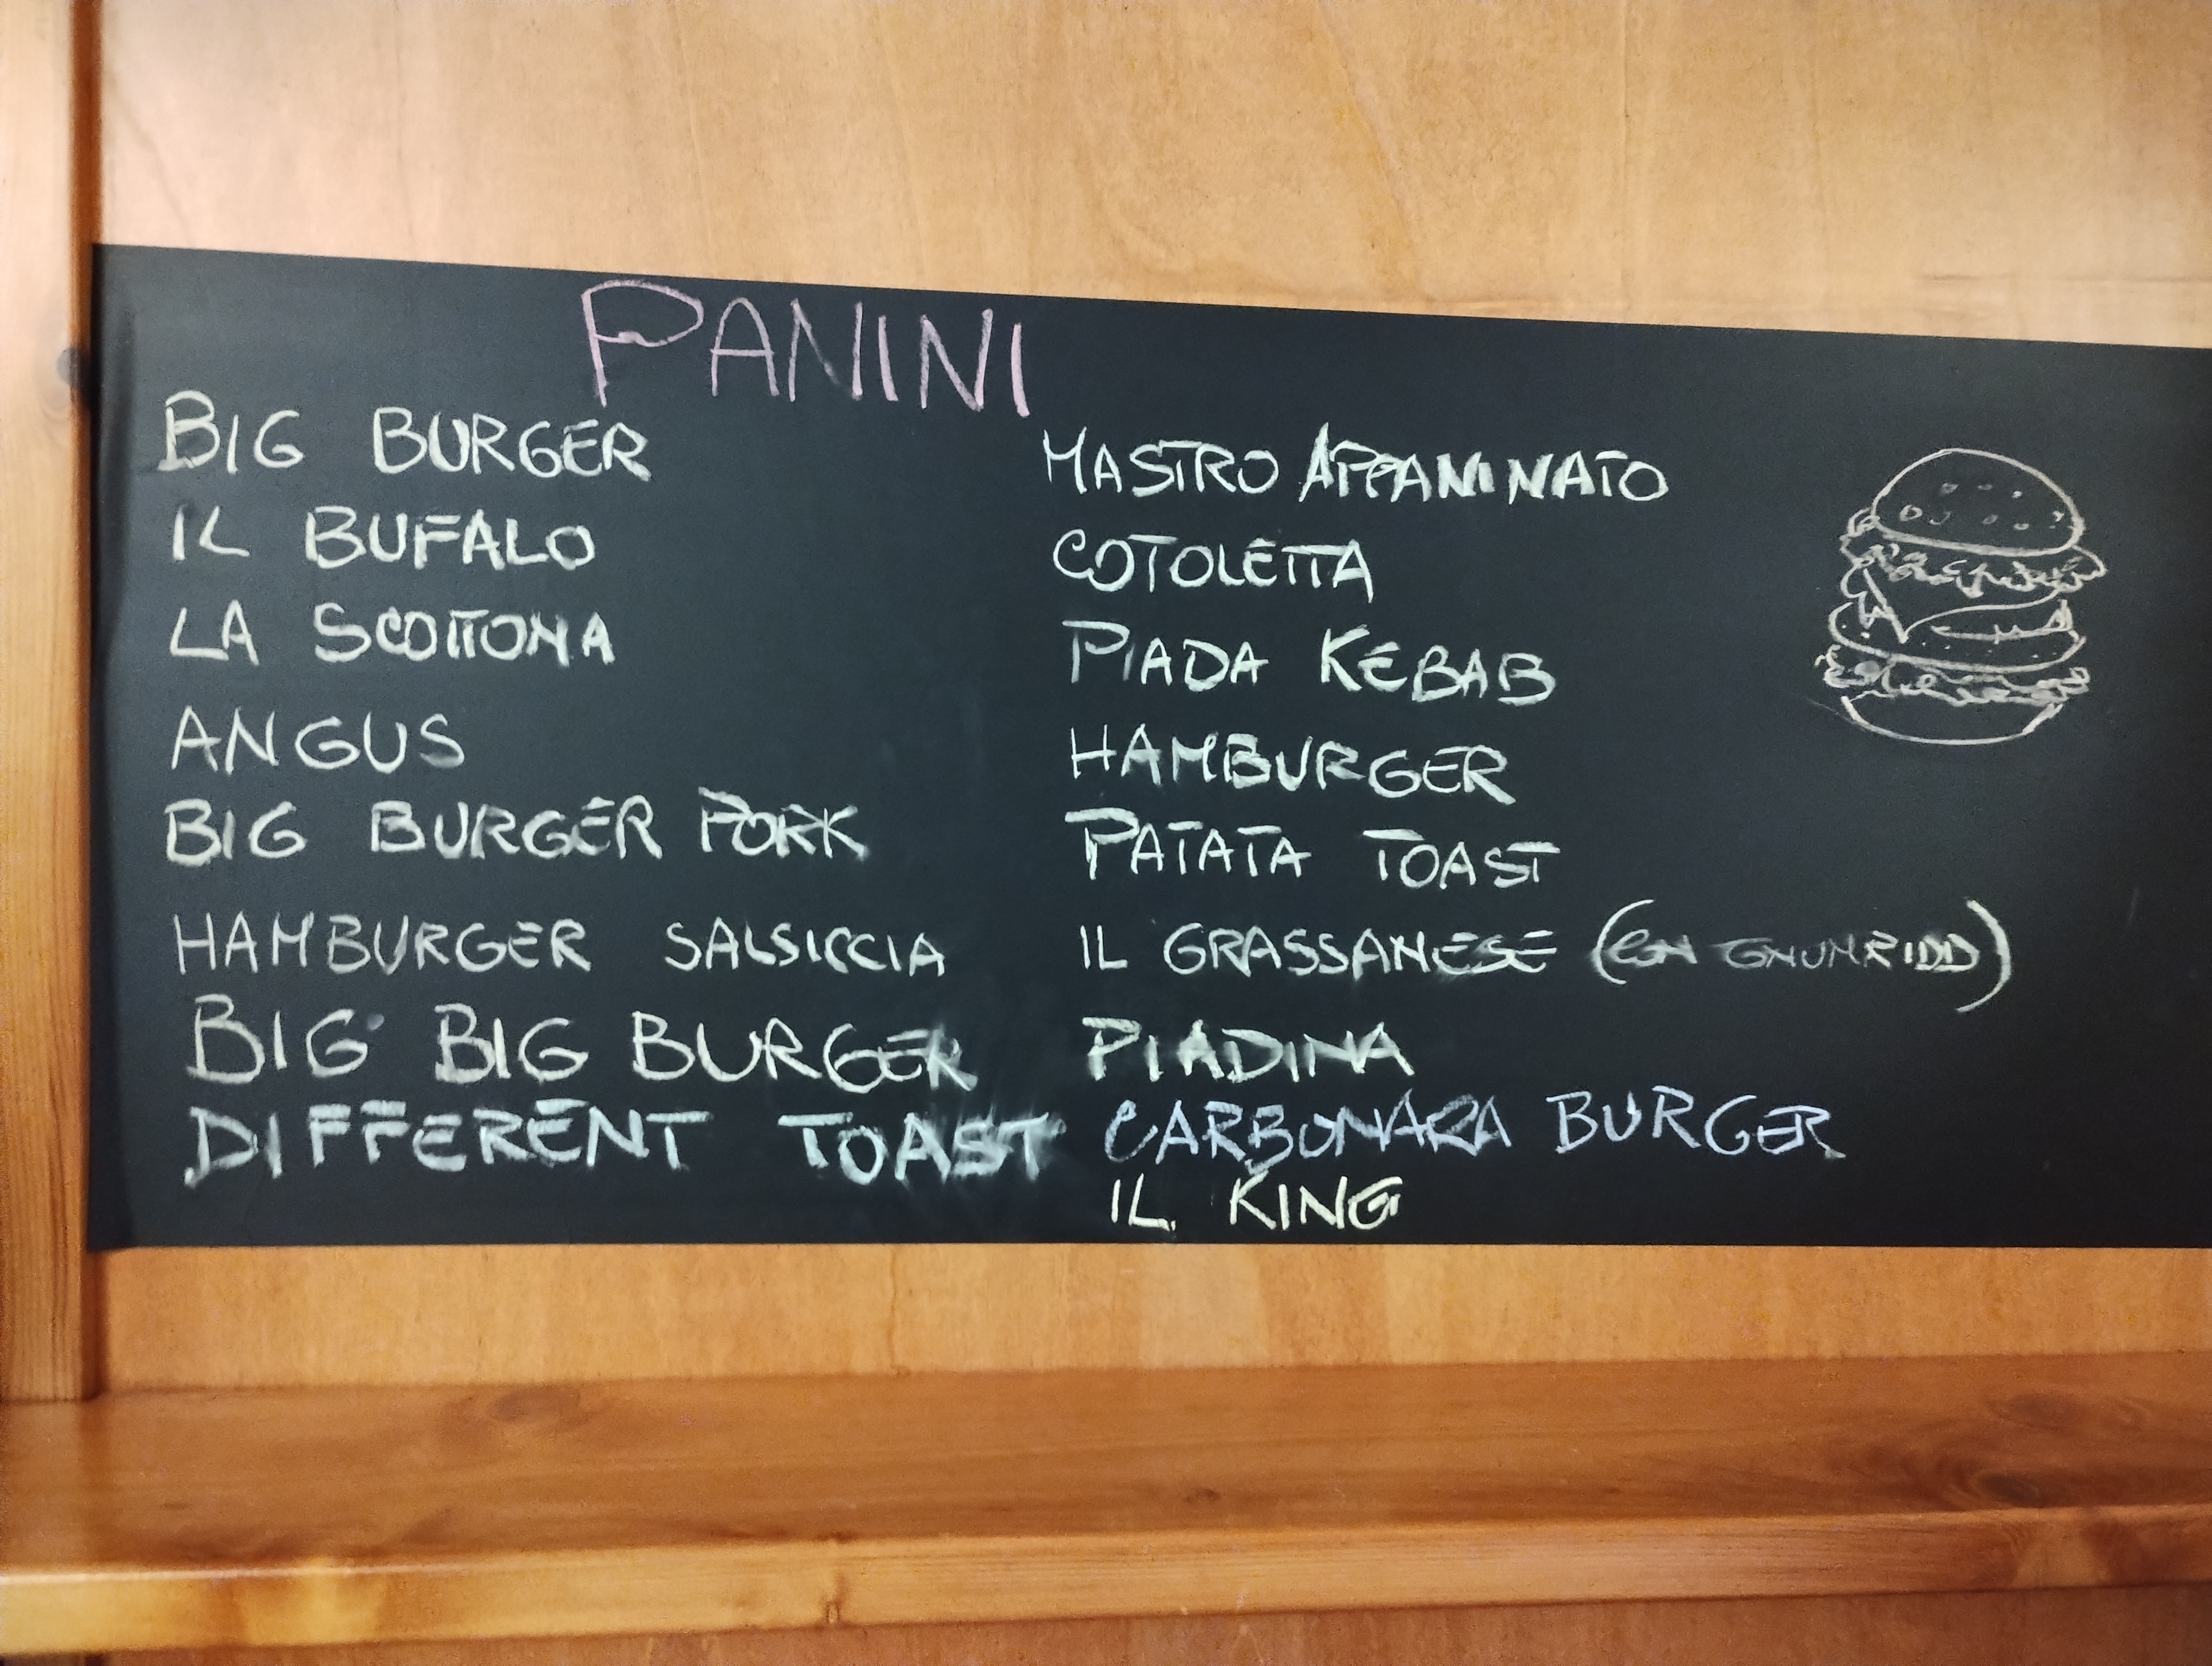 PANINI
BIG BURGER
IL BUFALO
LA SCOTTONA
ANGUS
BIG BURGER PORK
HAMBURGER SALSICCIA
BIG BIG BURGER
DIFFERENT TOAST
MASTRO APPANINATO
COTOLETTA
PIADA KEBAB
HAMBURGER
PATATA TOAST
IL GRASSANESE (CON GNUMRIDD)
PIADINA
CARBONARA BURGER
IL KING